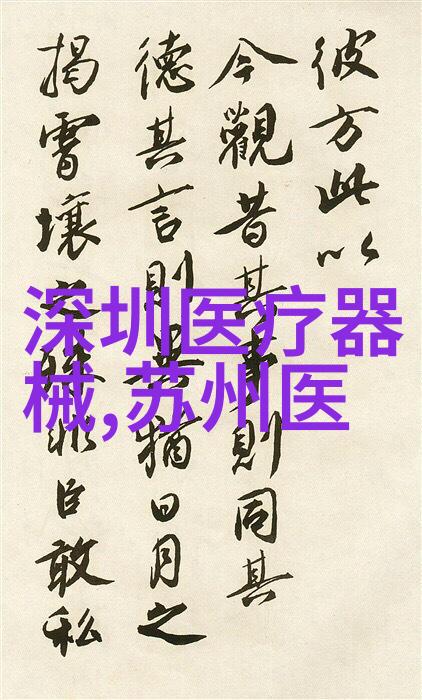 彼方此以
今觀昔其事則同其
德其言則異猶日月之
揭霄壤之殊非臣敢私
深圳医疗器
械,苏州医